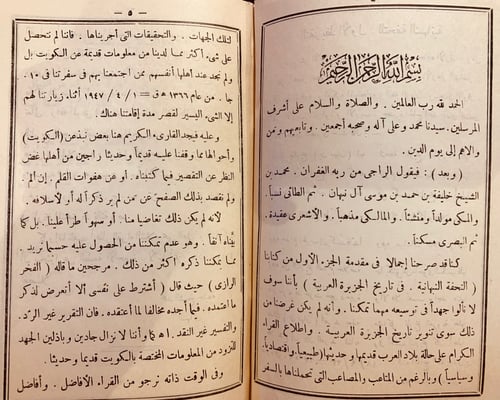 بسم الله الرحمن الرحيم
الحمد لله رب العالمين . والصلاة والسلام على أشرف
المرسلين . سيدنا محمد وعلى آله وصحبه أجمعين . وتابعيهم ومن
والاهم إلى يوم الدين .
( وبعد ) : فيقول الراجي من ربه الغفران . محمد بن
الشيخ خليفة بن حمد بن موسى آل نبهان . ثم الطائى نسباً .
والمكى مولداً ومنشئاً . والمالكى مذهباً . والأشعرى عقيدة .
ثم البصرى مسكنا .
كنا قد صرحنا إجمالا فى مقدمة الجزء الأول من كتابنا
( التحفة النبهانية . فى تاريخ الجزيرة العربية ) بأننا سوف
لا نألوا جهداً فى توسيعه مهما تمكنا . وأنه لم يكن غرضنا من
ذلك سوى تنوير تاريخ الجزيرة العربية . واطلاع القراء
الكرام على حالة بلاد العرب قديمها وحديثها ( طبيعياً . واقتصادياً .
وسياسياً ) وبالرغم من المتاعب والمصاعب التى تحملناها بالسفر
— ٥ —
لتلك الجهات . والتحقيقات التى أجريناها . فاننا لم نتحصل
على شىء أكثر مما لدينا من معلومات قديمة عن الكويت بل
ولم نجد عند أهلها أنفسهم ممن اجتمعنا بهم فى سفرتنا فى ١٠ .
جا . من عام ١٣٦٦ هـ ق = ١ / ٤ / ١٩٤٧ أثناء زيارتنا لهم
إلا الشىء اليسير لقصر مدة إقامتنا هناك .
وعليه فيجد القارىء الكريم هنا بعض نبذ عن ( الكويت )
وأحوالها مما وقفنا عليه قديماً وحديثاً راجين من أهلها غض
النظر عن التقصير فيما كتبناه . أو عن هفوات القلم . إن ألم .
ولم نقصد بذلك الصفح عن من لم ير ذكراً له أو لأسلافه .
لأنه لم يكن ذلك تغاضياً منا . أو سهواً طرأ علينا . بل كما
بيناه آنفاً . وهو عدم تمكننا من الحصول عليه حسبما نريد .
مما تمكننا ذكره أكثر من ذلك . مرجحين ما قاله ( الفخر
الرازى ) حيث قال ( أشترط على نفسى ألا أتعرض لذكر
ما أعتمده . فيما أجده مخالفا لما أعتقده . فان التقرير غير الرد .
والتفسير غير النقد . اهـ ) وأننا لا نزال جادين وباذلين الجهد
للتزود من المعلومات المختصة بالكويت قديما وحديثا .
وفى الوقت ذاته نرجو من القراء الأفاضل . وأفاضل